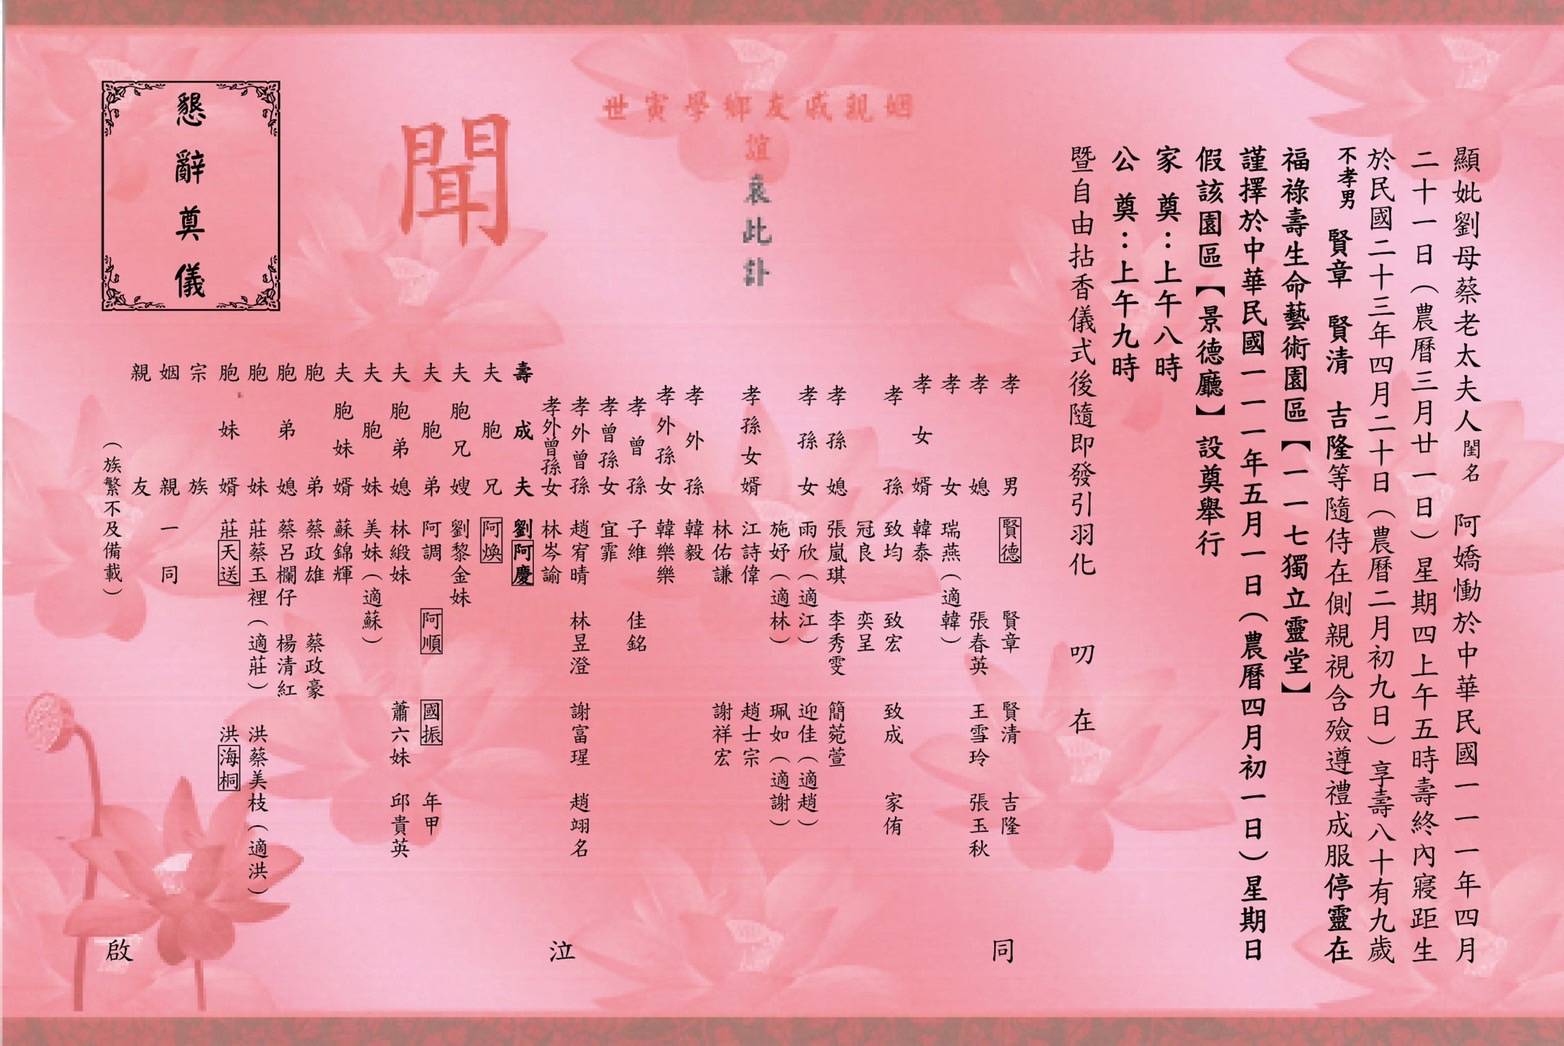 顯妣劉母蔡老太夫人閨名 阿嬌慟於中華民國一一一年四月
二十一日(農曆三月廿一日)星期四上午五時壽終內寢距生
於民國二十三年四月二十日(農曆二月初九日)享壽八十有九歲
不孝男 賢章 賢清 吉隆等隨侍在側親視含殮遵禮成服停靈在
福祿壽生命藝術園區【一一七獨立靈堂】
謹擇於中華民國一一一年五月一日(農曆四月初一日)星期日
假該園區【景德廳】設奠舉行
家 奠:上午八時
公 奠:上午九時
暨自由拈香儀式後隨即發引羽化 叨 在
姻親戚友鄉學寅世
誼哀此訃
聞
懇辭奠儀
孝男 賢德 賢章 賢清 吉隆
孝媳 張春英 王雪玲 張玉秋
孝女 瑞燕(適韓)
孝女婿 韓泰
孝孫 致均 致宏 致成 家侑
冠良 奕呈
孝孫媳 張嵐琪 李秀雯 簡菀萱
孝孫女 雨欣(適江) 迎佳(適趙)
施妤(適林) 珮如(適謝)
孝孫女婿 江詩偉 趙士宗
林佑謙 謝祥宏
孝外孫 韓毅
孝外孫女 韓樂樂
孝曾孫 子維 佳銘
孝曾孫女 宜霏
孝外曾孫 趙宥晴 林昱澄 謝富瑆 趙翊名
孝外曾孫女 林岑諭
壽成夫 劉阿慶
夫胞兄 阿煥
夫胞兄嫂 劉黎金妹
夫胞弟 阿調 阿順 國振 年甲
夫胞弟媳 林緞妹 蕭六妹 邱貴英
夫胞妹 美妹(適蘇)
夫胞妹婿 蘇錦輝
胞弟 蔡政雄 蔡政豪
胞弟媳 蔡呂欄仔 楊清紅
胞妹 莊蔡玉裡(適莊) 洪蔡美枝(適洪)
胞妹婿 莊天送 洪海桐
宗族
姻親一同
親友
(族繁不及備載)
同
泣
啟